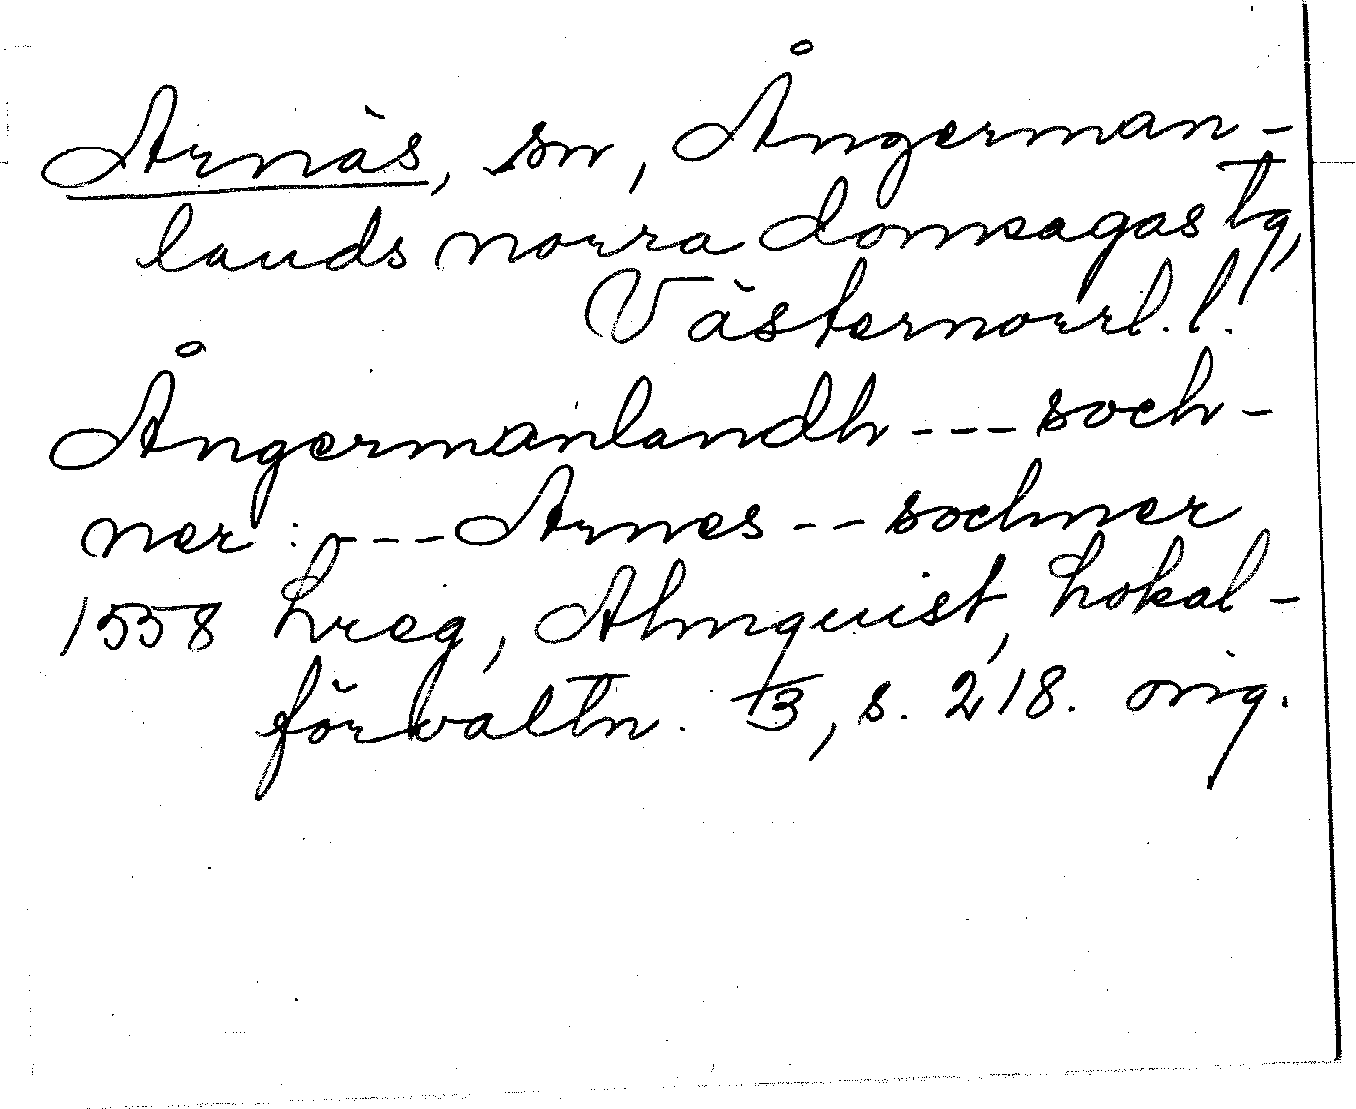 Arnäs, sn, Ångerman-
lands norra domsagas tg,
Västernorrl. l.
Ångermanlandh --- soch-
ner : --- Arnes -- sochner
1558 Lreg, Almquist, Lokal-
förvaltn. 3, s. 218. orig.